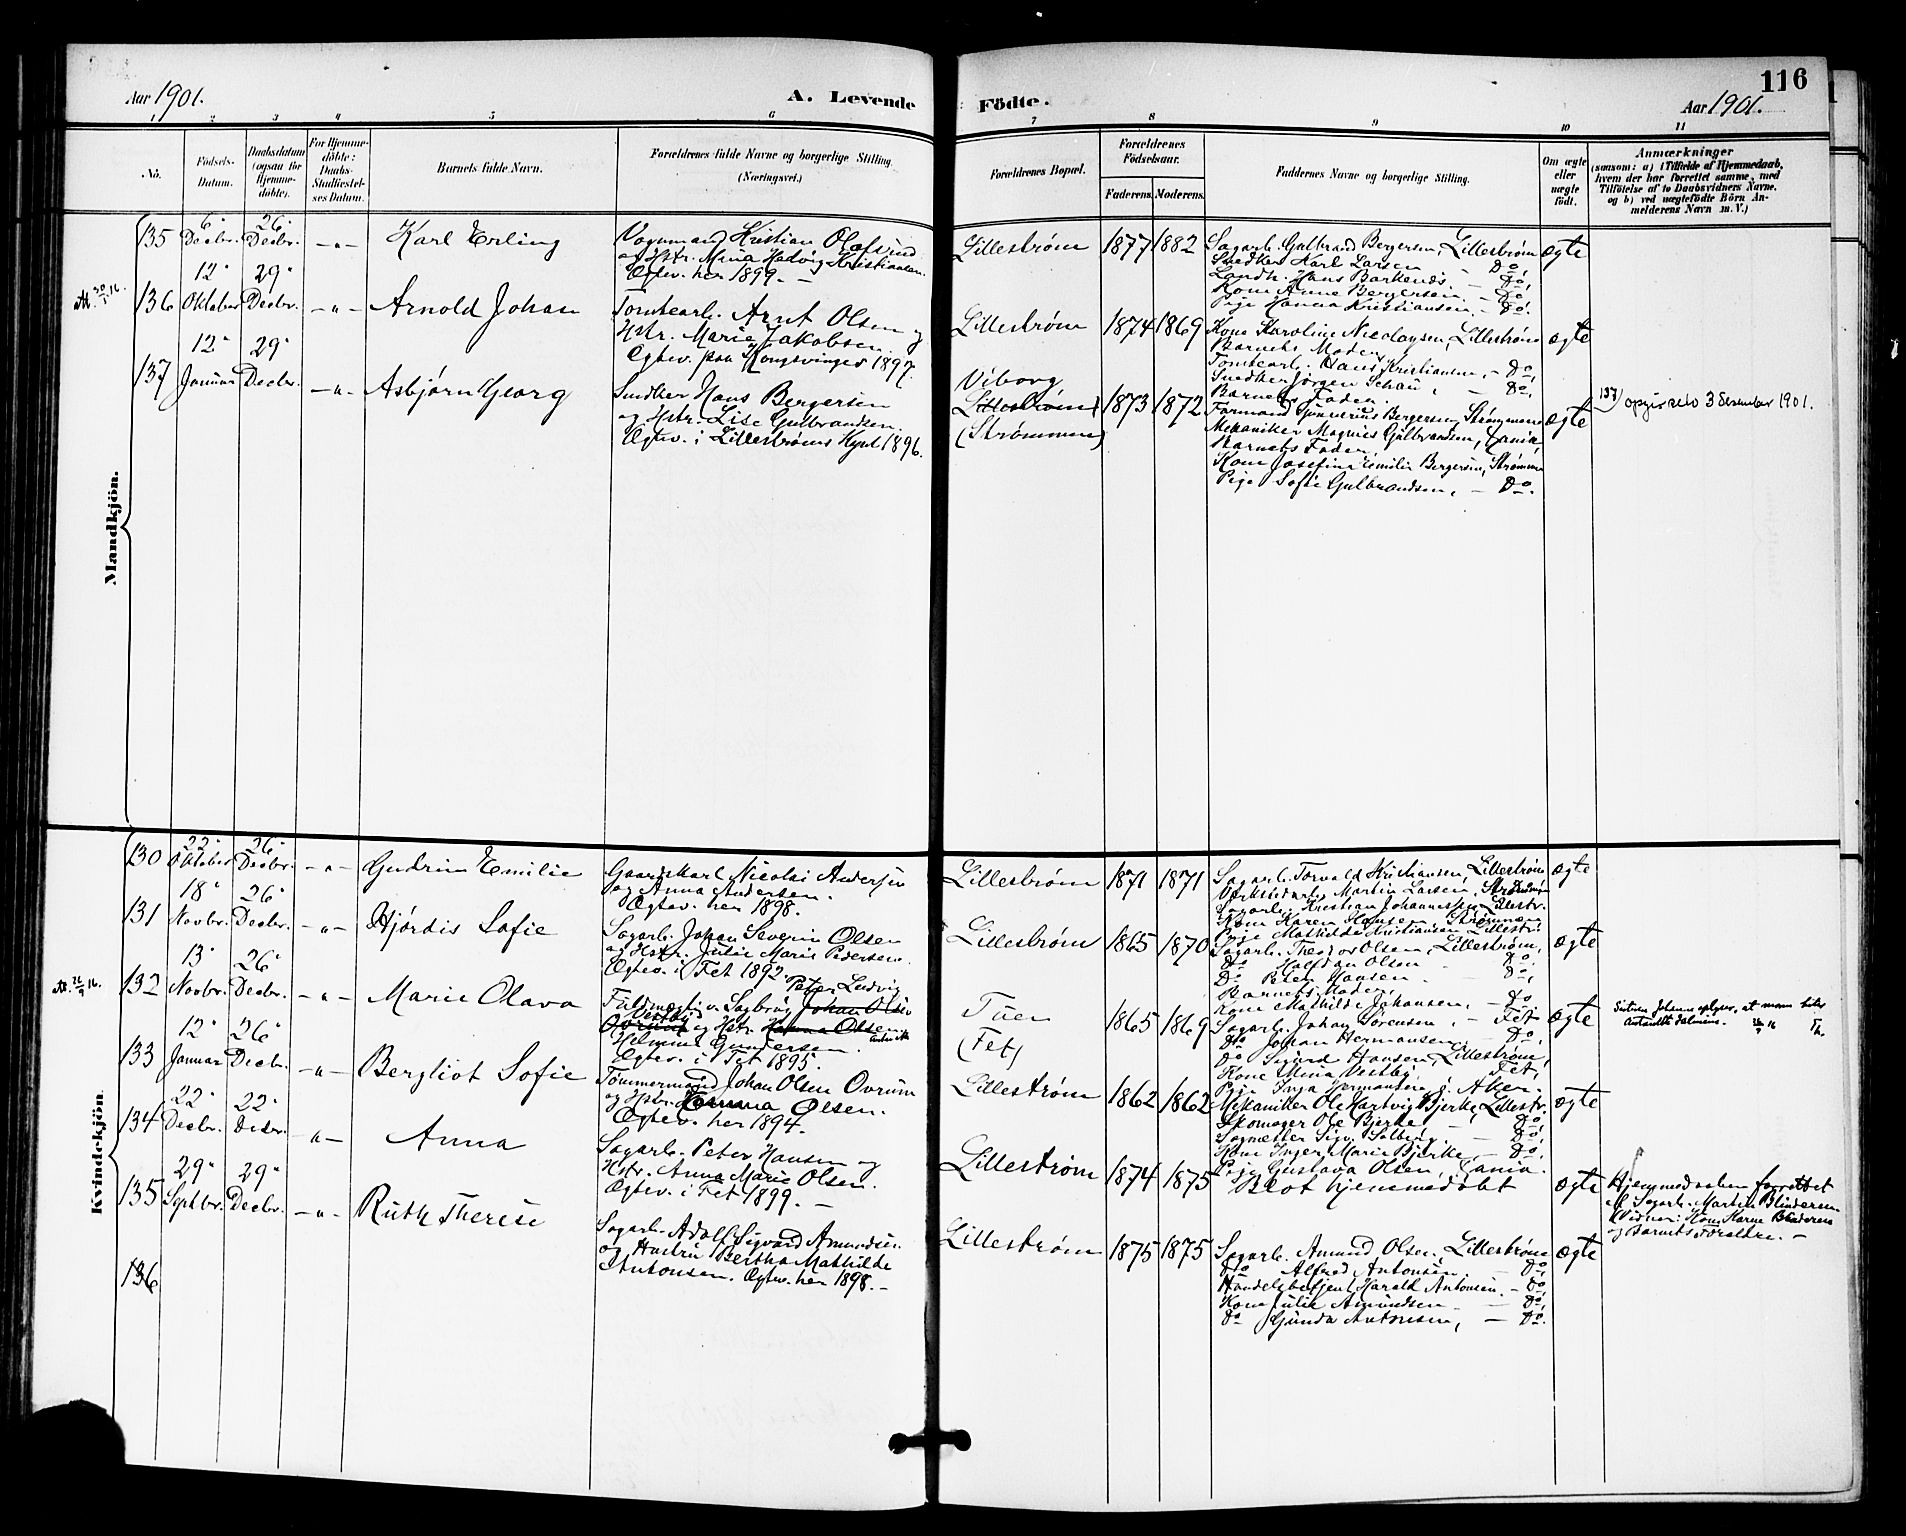 Aar 1901.
A. Levende
Födte.
116
Aar 1901.
1 2 3 4 5 6 7 8 9 10 11
Nö.
Födsels-Datum.
Daabsdatum (ogsaa for Hjemmedöbte).
For Hjemmedöbte: Daabs-Stadfæstelses Datum.
Barnets fulde Navn.
Forældrenes fulde Navne og borgerlige Stilling.
(Næringsvei.)
Forældrenes Bopæl.
Forældrenes Födselsaar.
Faderens. Moderens.
Faddernes Navne og borgerlige Stilling.
Om ægte eller uægte födt.
Anmærkninger
(saasom: a) i Tilfælde af Hjemmedaab,
hvem der har forrettet samme, med
Tilföielse af to Daabsvidners Navne.
og b) ved uægtefödte Börn An-
melderens Navn m. V.)
Mandkjön.
135 6' Decbr. 26' Decbr. -"- Karl Erling
Vognmand Kristian Olafsrud
og Hstr. Mina Hedvig Kristiansen.
Egtev. her 1899. –
Lillestrøm 1877 1882
Sagarb. Gulbrand Bergersen, Lillestrøm
Snedker Karl Larsen – Do,
Landh. Hans Barkenæs. – Do,
Kone Anne Bergersen – Do
Pige Hanna Kristiansen. – Do.
ægte
At. 20/1 16.
136 12' Oktober 29' Decbr. -"- Arnold Johan
Tomtearb. Arnt Olsen og
Hstr. Marie Jakobsen.
Egtev. paa Kongsvinger 1897.
Lillestrøm 1874 1869
Kone Karoline Nicolaysen, Lillestrøm
Barnets Moder,
Tomtearb. Hans Kristiansen, – Do,
Snedker Jørgen Schau, – Do,
Barnets Fader.
ægte
137 12' Januar 29' Decbr. -"- Asbjørn Georg
Snedker Hans Bergersen
og Hstr. Lise Gulbrandsen.
Egtev. i Lillestrøms Kpel. 1896.
Viborg,
Lillestrøm
(Strømmen)
1873 1872
Formand Gunerius Bergersen, Strømmen
Mekaniker Magnus Gulbrandsen, Lania
Barnets Fader,
Kone Josefine Emilie Bergersen, Strømmen
Pige Sofie Gulbrandsen, – Do.
ægte
137) 3 December 1901.
Kvindekjön.
130 22' Oktober 26' Decbr. -"- Gudrun Emilie
Gaardskarl Nicolai Andersen
og Anna Andersen.
Egtev. her 1898.
Lillestrøm 1871 1871
Sagarb. Torvald Kristiansen, Lillestrøm
Værkstedarb. Martin Larsen, Strømmen
Sagarb. Kristian Johannessen, Lillestr.
Kone Karen Hansen, Strømmen
Pige Mathilde Kristiansen Lillestr.
ægte
131 18' Novbr. 26' Decbr. -"- Hjørdis Sofie
Sagarb. Johan Severin Olsen
og Hstr. Julie Marie Pedersen.
Egtev. i Fet 1892.
Lillestrøm 1865 1870
Sagarb. Theodor Olsen, Lillestrøm,
Do Halfdan Olsen – Do,
Do Peter Hansen – Do,
Barnets Moder,
Kone Mathilde Johansen, – Do
ægte
At. 26/9 16.
132 13' Novbr. 26' Decbr. -"- Marie Olava
Peter Ludvig
Fuldmægtig v. Sagbrug Johan Olsen
Vestby
Ovrum og Hstr. Hanna Olsen
Helmine Gundersen.
Egtev. i Fet 1895.
Tuen
(Fet)
1865 1869
Sagarb. Johan Sørensen, – Fet
Do Johan Hermansen, – Do,
Do Sigurd Hansen, Lillestrøm,
Kone Mina Vestby, Fet,
Pige Inga Hermansen, Aker.
ægte
133 12' Januar 26' Decbr. -"- Bergliot Sofie
Tømmermand Johan Olsen Ovrum
og Hstr. Hanna Olsen.
Egtev. her 1894.
Lillestrøm 1862 1862
Mekaniker Ole Hartvig Bjerke, Lillestr.
Skomager Ole Bjerke – Do,
Sagmester Sigv. Solberg, – Do,
Kone Inger Marie Bjerke, – Do,
Pige Gustava Olsen, Lania.
ægte
134 22' Decbr. 22' Decbr. -"- Anna
Sagarb. Peter Hansen og
Hstr. Anna Marie Olsen.
Egtev. i Fet 1899. –
Lillestrøm 1874 1875
Blot hjemmedøbt
ægte
Hjemmedaaben forrettet
af Sagarb. Martin Blindersen
Vidner: Kone Karen Blindersen
og Barnets Forældre. –
135 29' Septbr. 29' Decbr. -"- Ruth Therese
Sagarb. Adolf Sigvard Amundsen
og Hustru Bertha Mathilde
Antonsen. Egtev. her 1898. –
Lillestrøm 1875 1875
Sagarb. Amund Olsen, Lillestrøm
Do Alfred Antonsen – Do,
Handelsbetjent Harald Antonsen, – Do,
Kone Julie Amundsen – Do,
Do Gunda Antonsen, – Do.
ægte
136